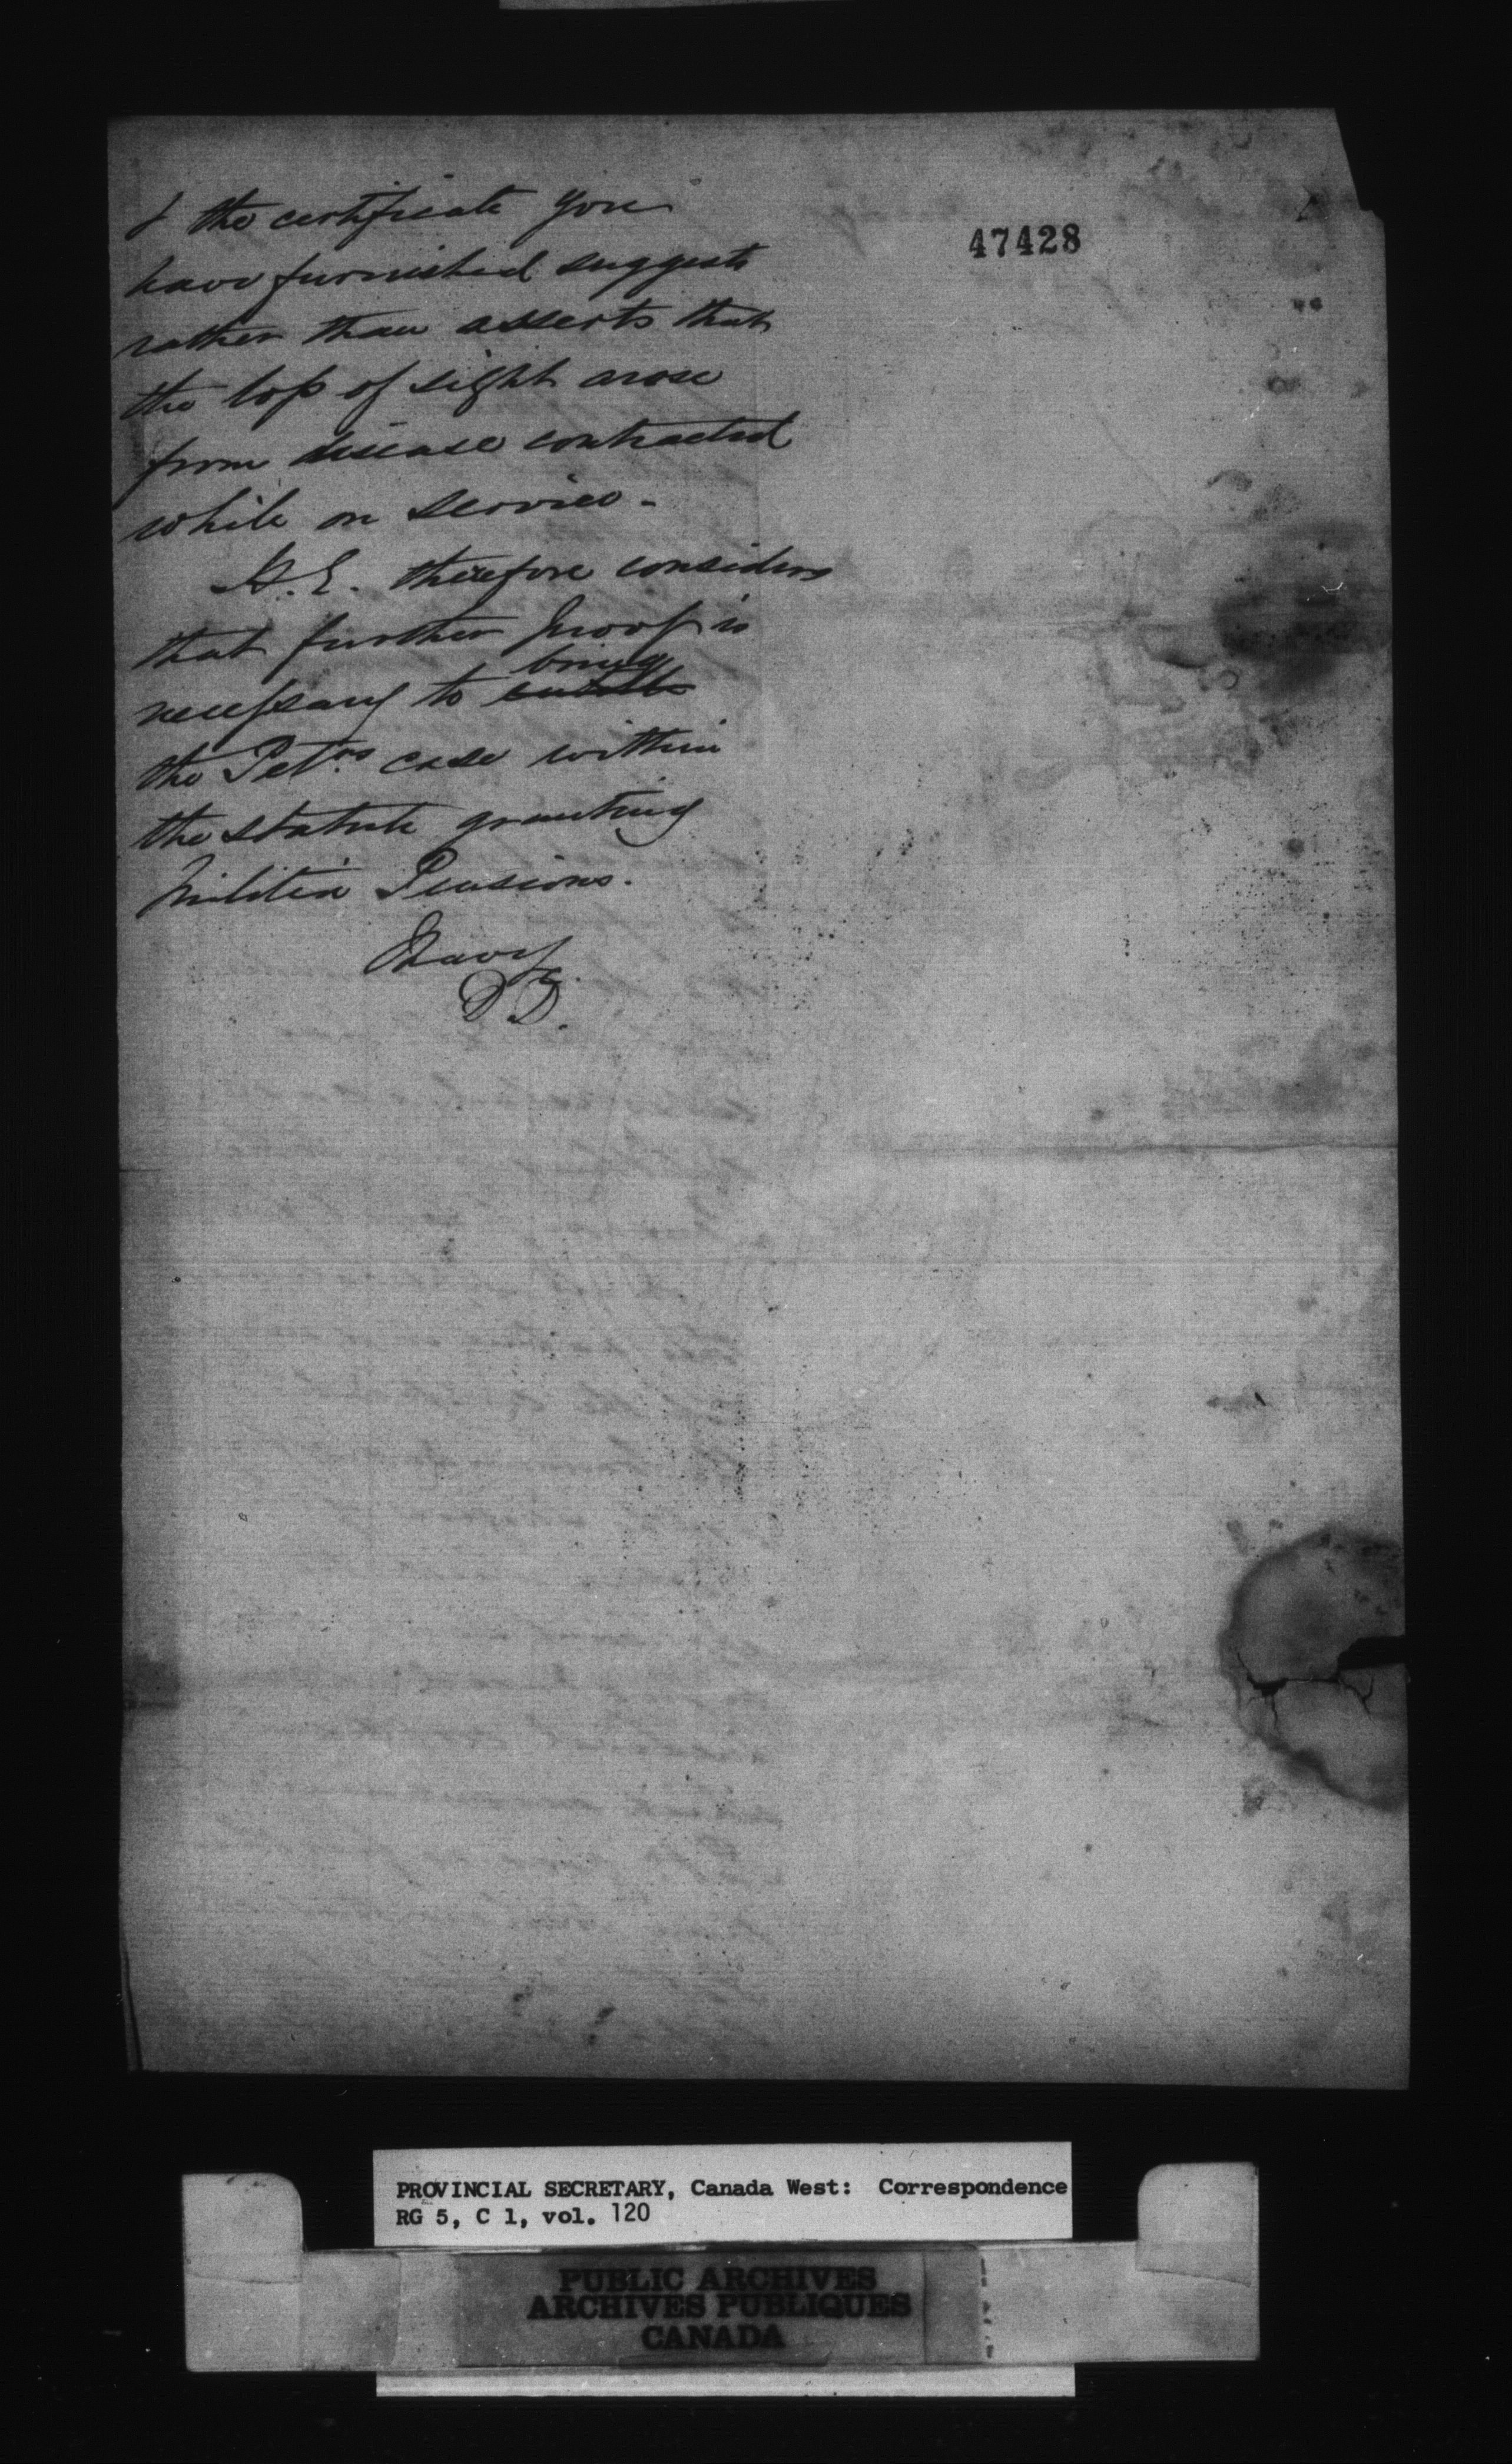 & the certificate you
have furnished suggests
rather than asserts that
the loss of sight arose
from disease contracted
while on service -
H.E. therefore considers
that further proof is
necessary to entitle bring
the Petrs case within
the statute granting
Militia Pensions.
I have
D D.
47428
PROVINCIAL SECRETARY, Canada West: Correspondence
RG 5, C 1, vol. 120
PUBLIC ARCHIVES
ARCHIVES PUBLIQUES
CANADA